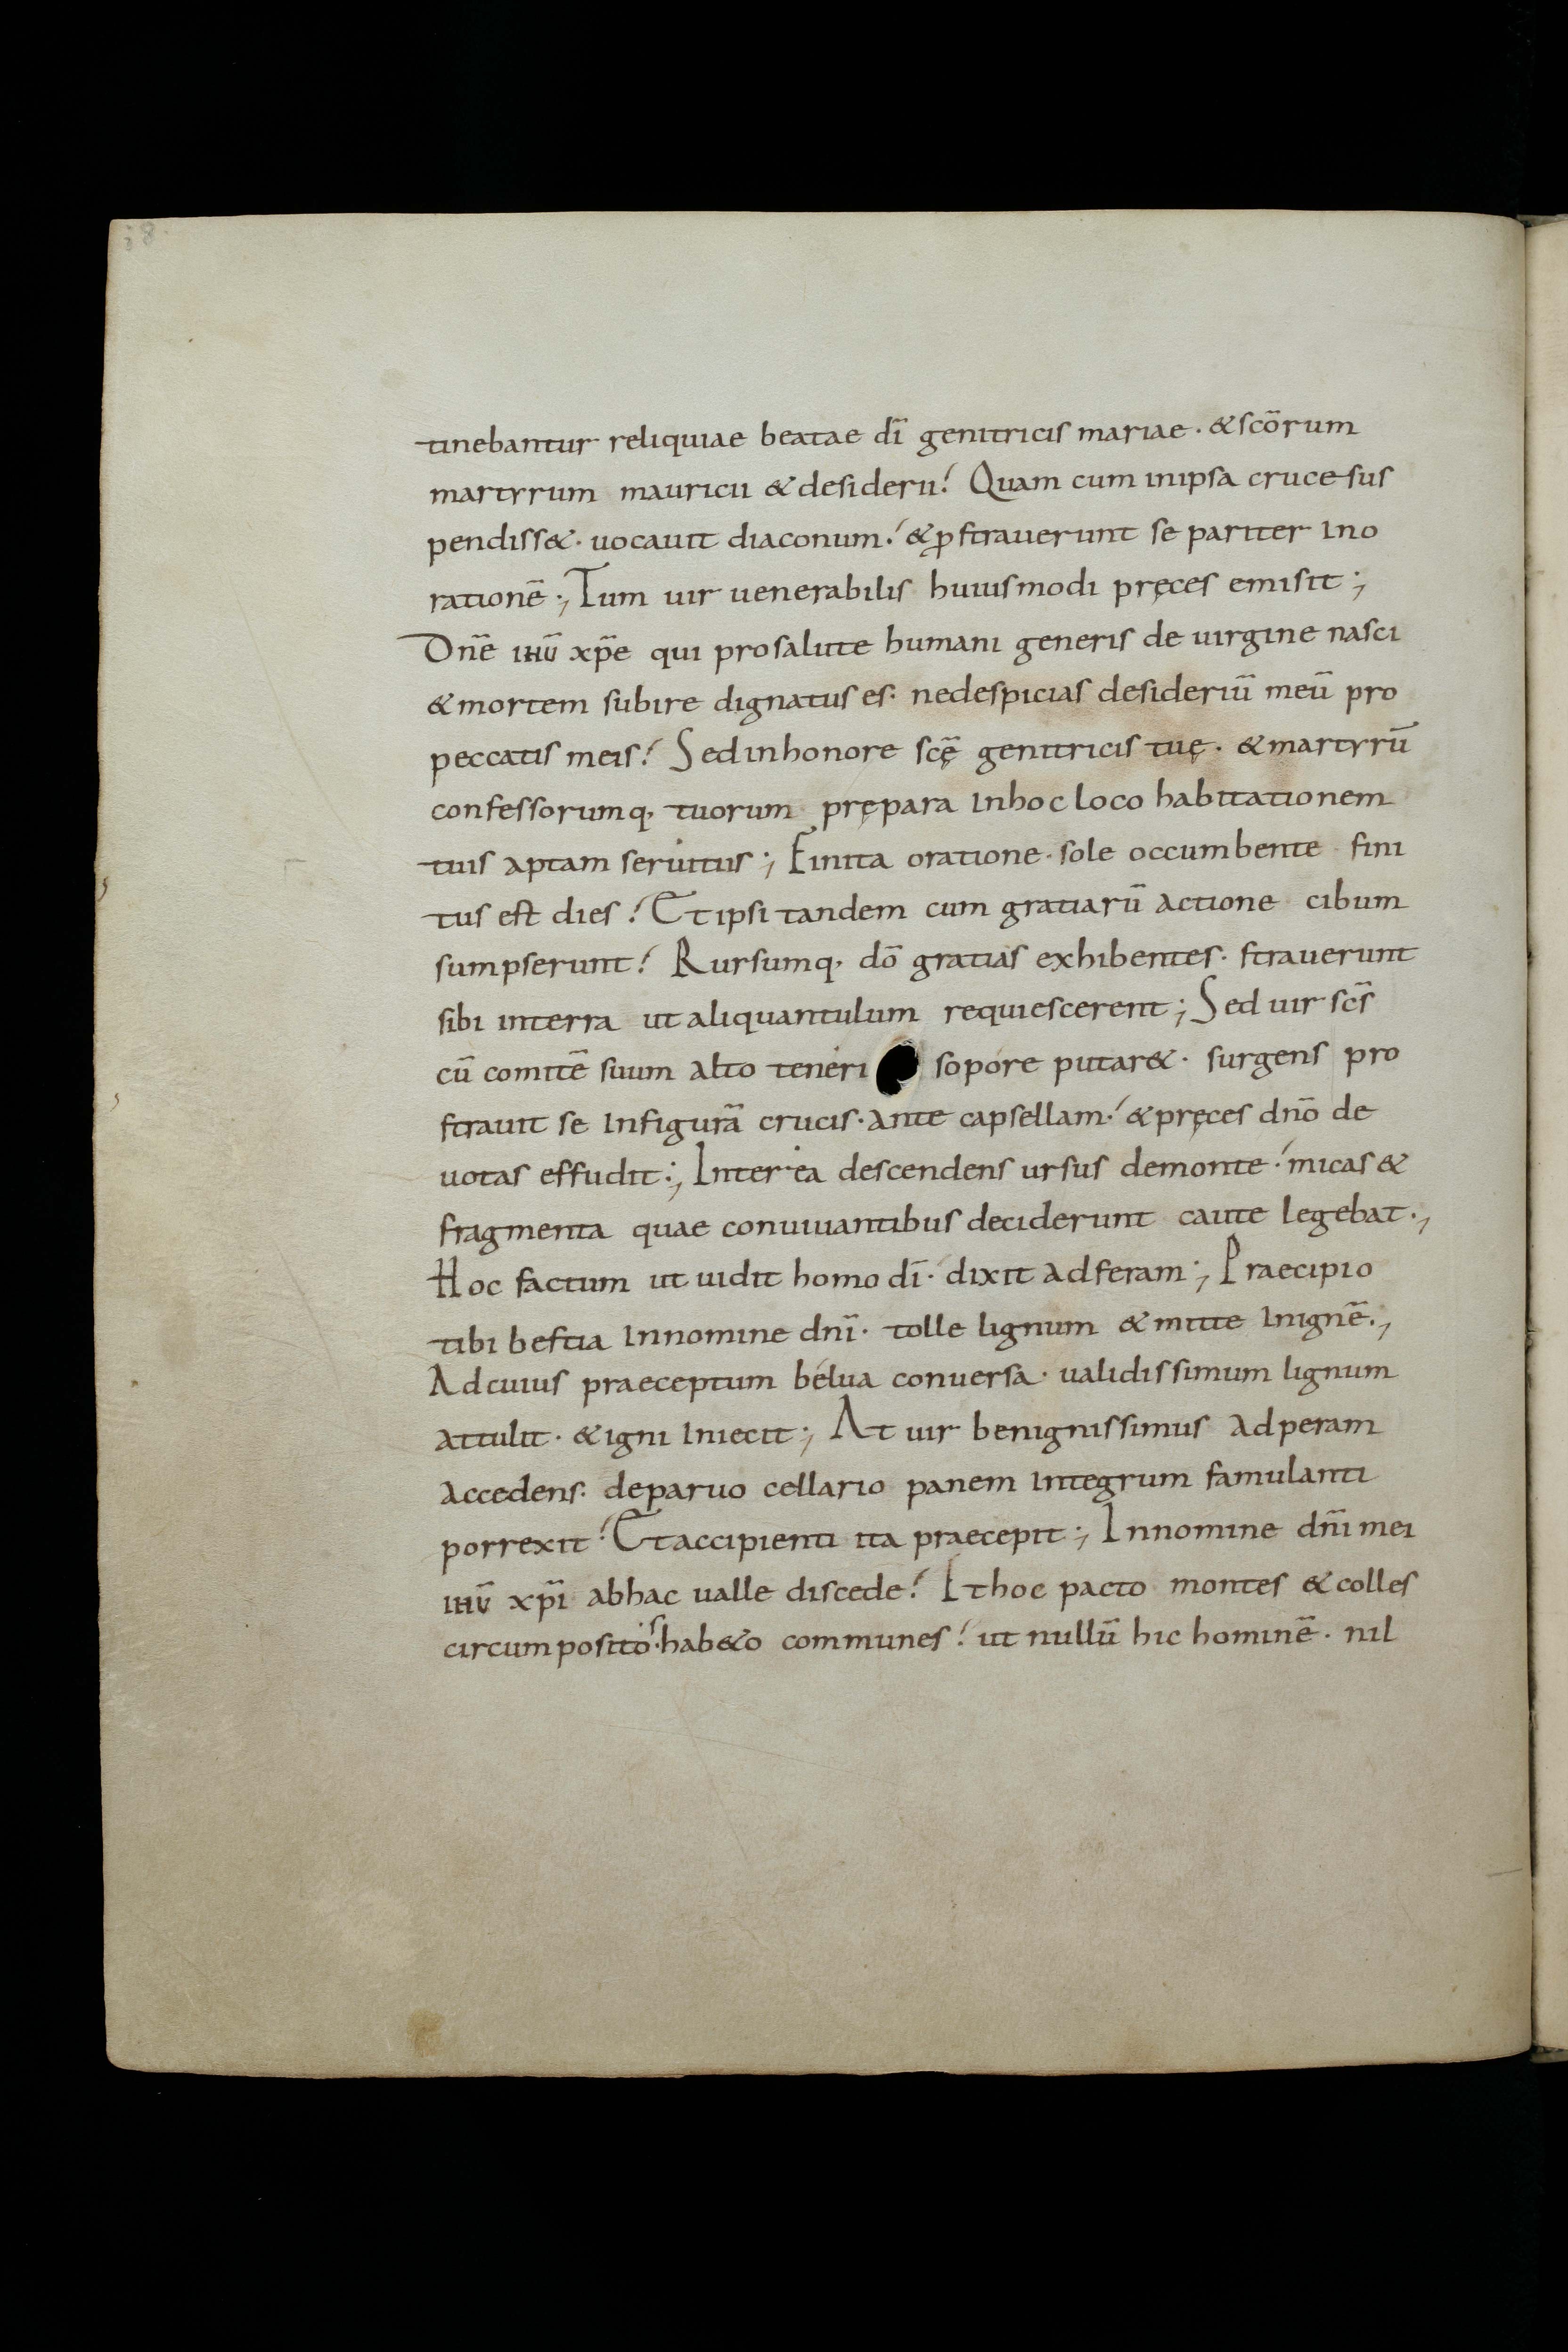 tinebantur reliquiae beatae dī genitricis mariae · & scōrum
martyrum mauricii & desiderii! Quam cum in ipsa cruce sus
pendiss& · uocauit diaconum! & ꝓstrauerunt se pariter in o
rationē ·, Tum uir uenerabilis huiusmodi pręces emisit ;
Dnē ihū xp̄e qui pro salute humani generis de uirgine nasci
& mortem subire dignatus es · ne despicias desideriū meū pro
peccatis meis! Sed in honore scę̄ genitricis tuę · & martyrū
confessorumq, tuorum prępara in hoc loco habitationem
tuis aptam seruitiis ; Finita oratione · sole occumbente fini
tus est dies! Et ipsi tandem cum gratiarū actione cibum
sumpserunt! Rursumq, dō gratias exhibentes · strauerunt
sibi in terra ut aliquantulum requiescerent ; Sed uir scs̄
cū comitē suum alto teneri sopore putar& · surgens pro
strauit se in figurā crucis · ante capsellam! & pręces dnō de
uotas effudit ; Interea descendens ursus de monte! micas &
fragmenta quae conuiuantibus deciderunt caute legebat ·,
Hoc factum ut uidit homo dī · dixit ad feram ; Praecipio
tibi bestia in nomine dnī · tolle lignum & mitte in ignē ·,
Ad cuius praeceptum bélua conuersa · ualidissimum lignum
attulit · & igni iniecit ; At uir benignissimus ad peram
accedens · de paruo cellario panem integrum famulanti
porrexit! Et accipienti ita praecepit ; In nomine dn̄i mei
ihū xp̄i ab hac ualle discede! It hoc pacto montes & colles
circumpositos · hab&o communes! ut nullū hic hominē · nil